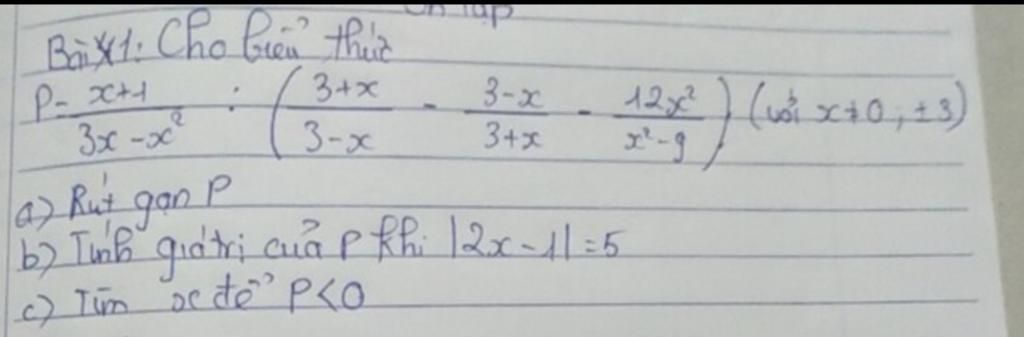 Ôn tập
Bài 1: Cho biểu thức
P = \frac{x+1}{3x-x^2} : \left( \frac{3+x}{3-x} - \frac{3-x}{3+x} - \frac{12x^2}{x^2-9} \right) (với x≠0; ±3)
a) Rút gọn P
b) Tính giá trị của P khi |2x-1|=5
c) Tìm x để P<0